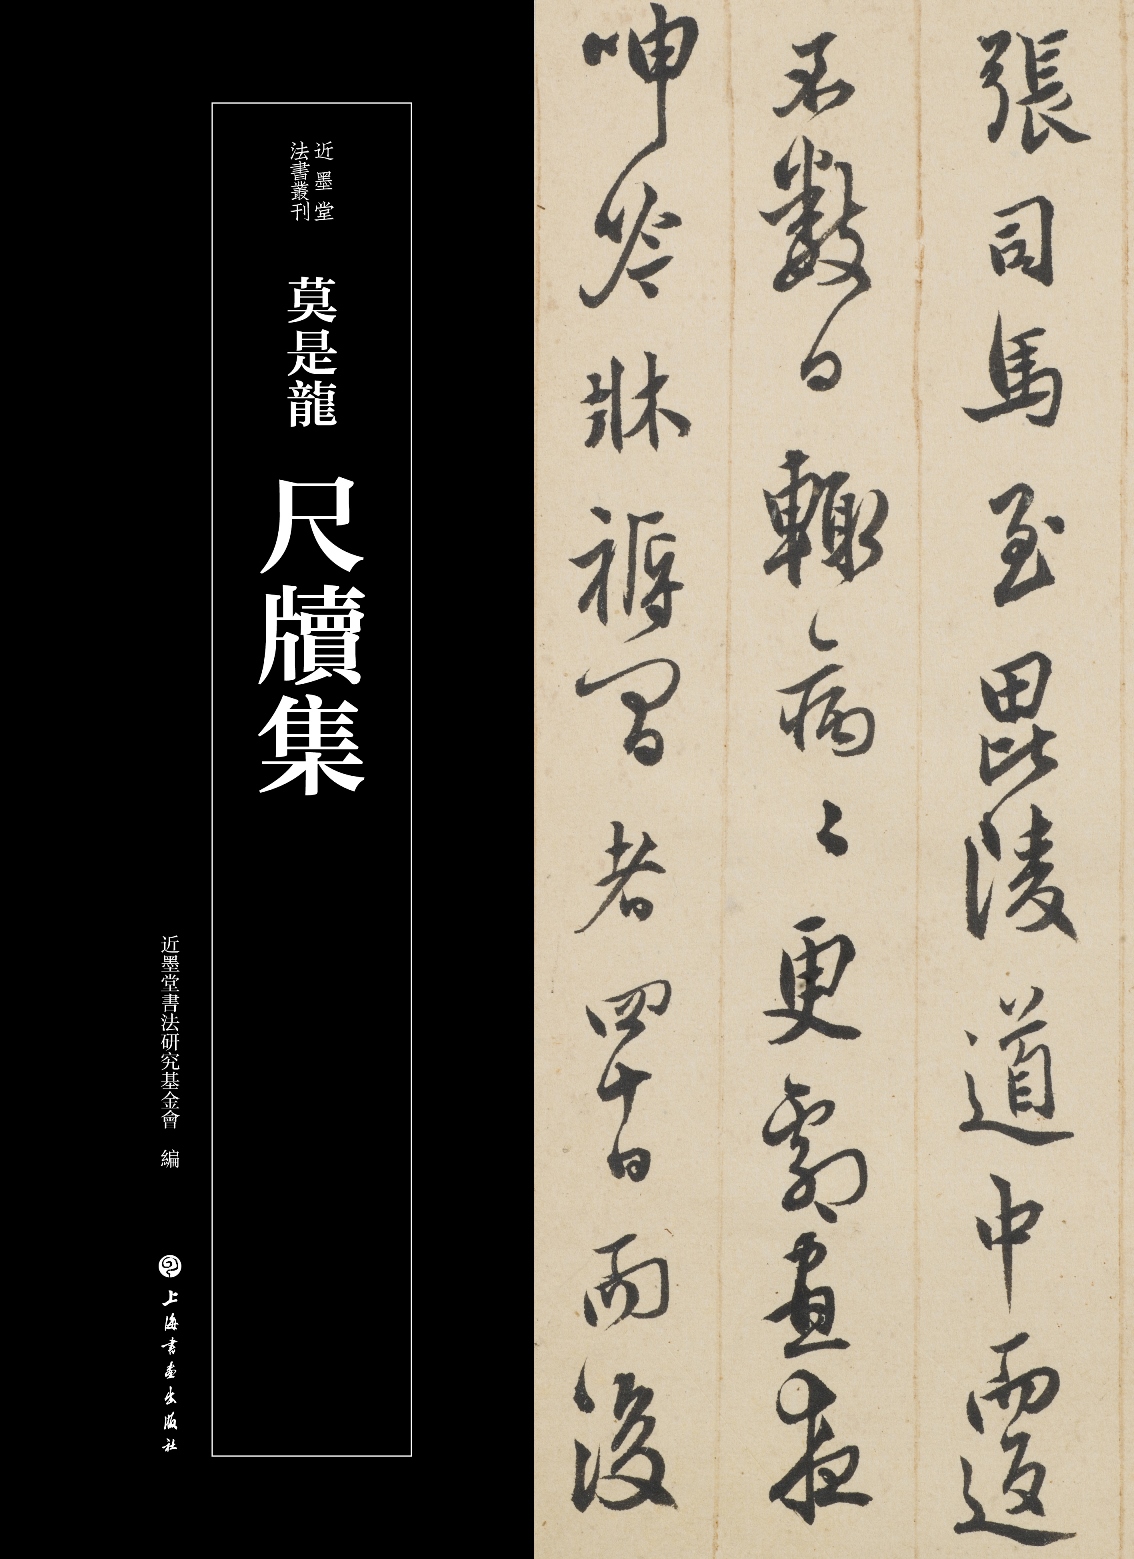 近墨堂
法書叢刊
莫是龍
尺牘集
近墨堂書法研究基金會 編
上海書畫出版社
張司馬至毘陵道中而返
不數日輒病々更劇晝夜
呻吟牀褥間者四十日而後